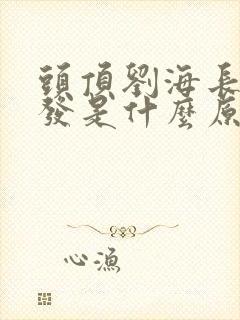 頭頂劉海長
發是什麼原
心漁